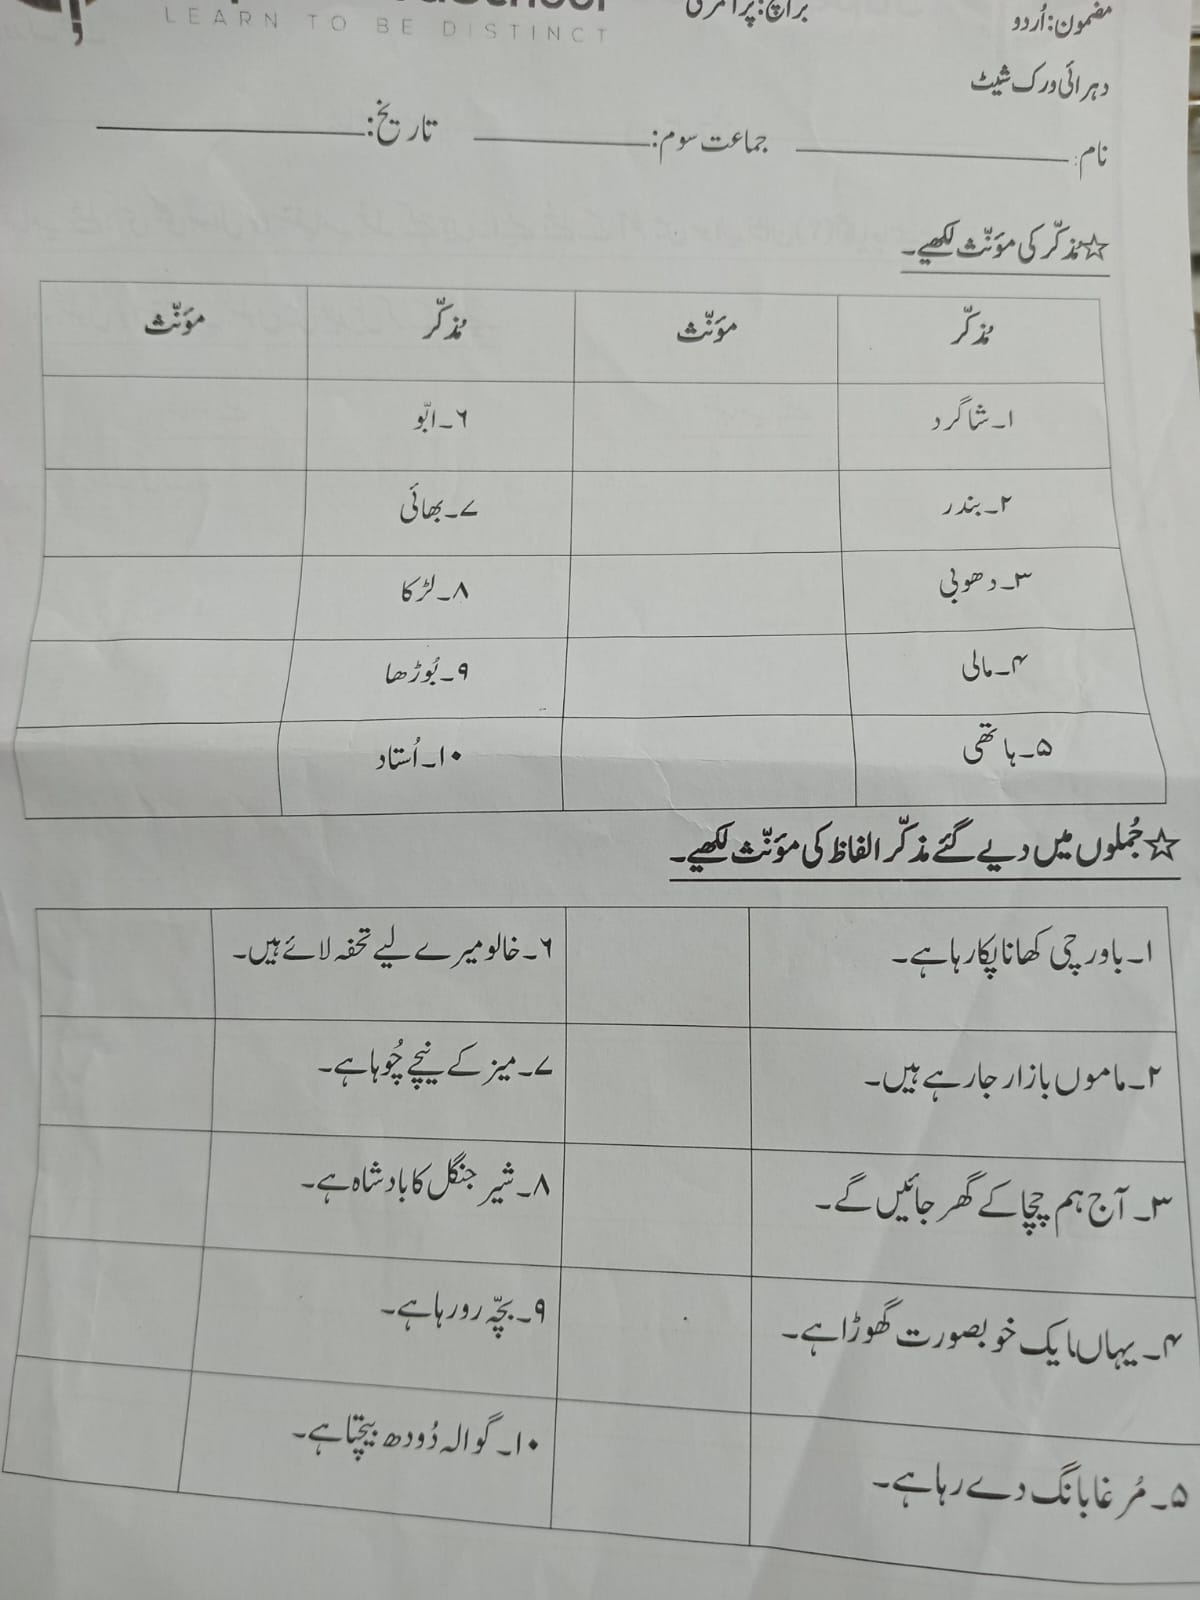 LEARN TO BE DISTINCT
برانچ: پرائمری
مضمون: اُردو
دہرائی ورک شیٹ
نام: ________ جماعت سوم: ________ تاریخ: ________
☆مذکّر کی مؤنّث لکھیے۔
مذکّر مؤنّث مذکّر مؤنّث
۱۔شاگرد ۶۔ابّو
۲۔بندر ۷۔بھائی
۳۔دھوبی ۸۔لڑکا
۴۔مالی ۹۔بُوڑھا
۵۔ہاتھی ۱۰۔اُستاد
☆جُملوں میں دیے گئے مذکّر الفاظ کی مؤنّث لکھیے۔
۱۔باورچی کھانا پکا رہا ہے۔ ۶۔خالو میرے لیے تحفہ لائے ہیں۔
۲۔ماموں بازار جا رہے ہیں۔ ۷۔میز کے نیچے چُوہا ہے۔
۳۔آج ہم چچا کے گھر جائیں گے۔ ۸۔شیر جنگل کا بادشاہ ہے۔
۴۔یہاں ایک خوبصورت گھوڑا ہے۔ ۹۔بچّہ رو رہا ہے۔
۵۔مُرغا بانگ دے رہا ہے۔ ۱۰۔گوالہ دُودھ بیچتا ہے۔